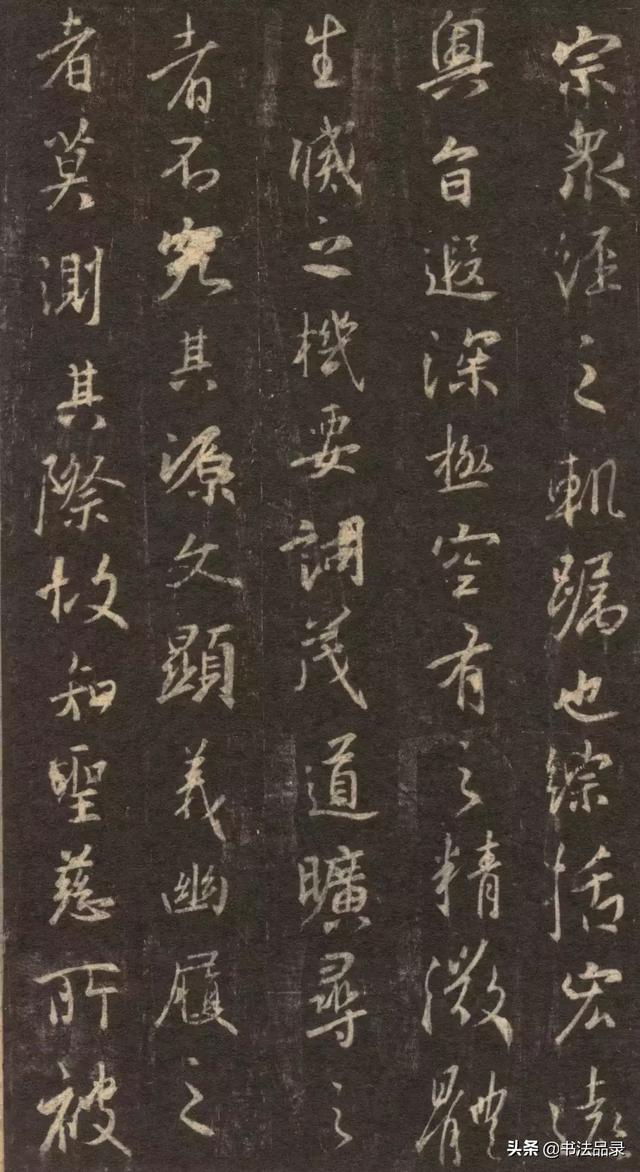 宗眾經之軌躅也綜括宏遠
奧旨遐深極空有之精微體
生滅之機要詞茂道曠尋之
者不究其源文顯義幽履之
者莫測其際故知聖慈所被
头条@书法品录